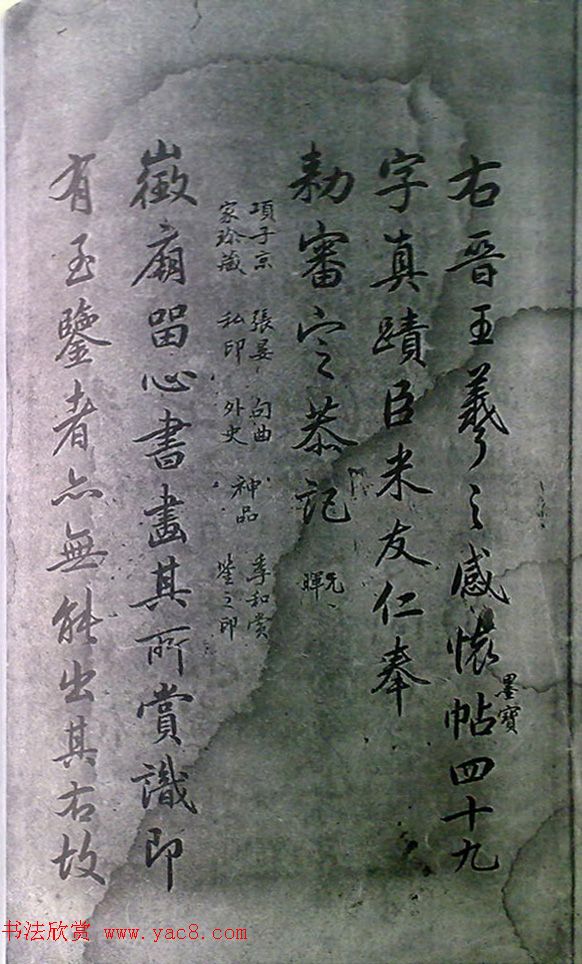 右晉王羲之感懷帖四十九
墨寶
字真蹟臣米友仁奉
勑審定恭記
元
暉
項子京
家珍藏
張晏
私印
句曲
外史
神品
季和賞
鑒之印
徽廟留心書畫其所賞識即
有至鑒者亦無能出其右故
书法欣赏 www.yac8.com